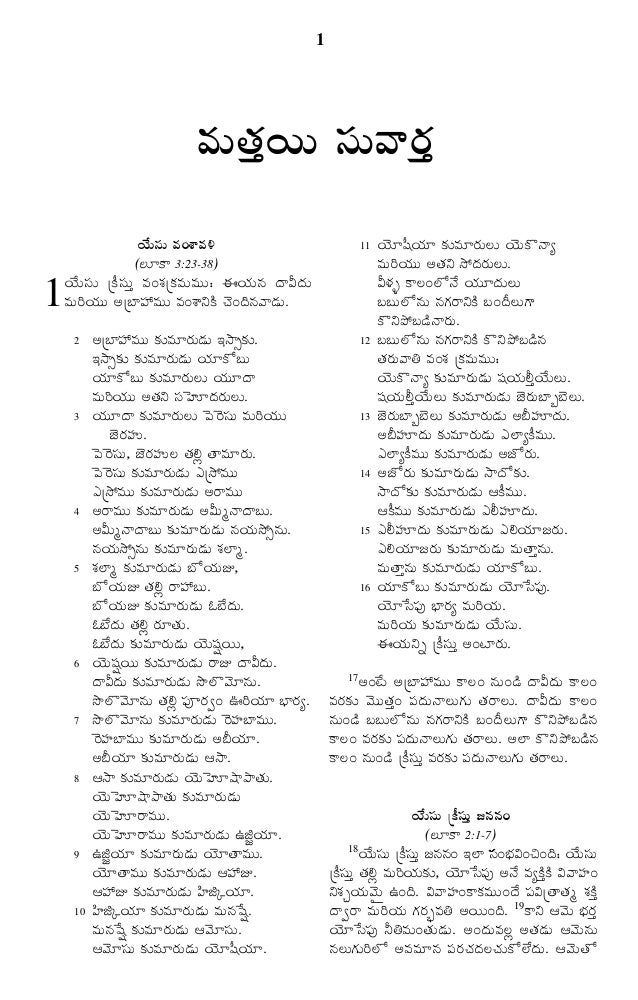 1
మత్తయి సువార్త
యేసు వంశావళి
(లూకా 3:23-38)
1 యేసు క్రీస్తు వంశక్రమము: ఈయన దావీదు
మరియు అబ్రాహాము వంశానికి చెందినవాడు.
2 అబ్రాహాము కుమారుడు ఇస్సాకు.
ఇస్సాకు కుమారుడు యాకోబు
యాకోబు కుమారులు యూదా
మరియు అతని సహెూదరులు.
3 యూదా కుమారులు పెరెసు మరియు
జెరహు.
పెరెసు, జెరహుల తల్లి తామారు.
పెరెసు కుమారుడు ఎస్రోము
ఎస్రోము కుమారుడు అరాము
4 అరాము కుమారుడు అమీ్మనాదాబు.
అమీ్మనాదాబు కుమారుడు నయసో్సను.
నయసో్సను కుమారుడు శల్మా.
5 శల్మా కుమారుడు బోయజు,
బోయజు తల్లి రాహాబు.
బోయజు కుమారుడు ఓబేదు.
ఓబేదు తల్లి రూతు.
ఓబేదు కుమారుడు యెషష్యి,
6 యెషష్యి కుమారుడు రాజు దావీదు.
దావీదు కుమారుడు సొలొమోను.
సొలొమోను తల్లి పూర్వం ఊరియా భార్య.
7 సొలొమోను కుమారుడు రెహబాము.
రెహబాము కుమారుడు అబీయా.
అబీయా కుమారుడు ఆసా.
8 ఆసా కుమారుడు యెహెూషాపాతు.
యెహెూషాపాతు కుమారుడు
యెహెూరాము.
యెహెూరాము కుమారుడు ఉజ్జియా.
9 ఉజ్జియా కుమారుడు యోతాము.
యోతాము కుమారుడు ఆహాజు.
ఆహాజు కుమారుడు హిజ్కియా.
10 హిజ్కియా కుమారుడు మనష్షే.
మనష్షే కుమారుడు ఆమోసు.
ఆమోసు కుమారుడు యోషీయా.
11 యోషీయా కుమారులు యెకొన్యా
మరియు అతని సోదరులు.
వీళ్ళ కాలంలోనే యూదులు
బబులోను నగరానికి బందీలుగా
కొనిపోబడినారు.
12 బబులోను నగరానికి కొనిపోబడిన
తరువాతి వంశ క్రమము:
యెకొన్యా కుమారుడు షయల్తీయేలు.
షయల్తీయేలు కుమారుడు జెరుబ్బాబెలు.
13 జెరుబ్బాబెలు కుమారుడు అబీహూదు.
అబీహూదు కుమారుడు ఎల్యాకీము.
ఎల్యాకీము కుమారుడు అజోరు.
14 అజోరు కుమారుడు సాదోకు.
సాదోకు కుమారుడు ఆకీము.
ఆకీము కుమారుడు ఎలీహూదు.
15 ఎలీహూదు కుమారుడు ఎలియాజరు.
ఎలియాజరు కుమారుడు మత్తాను.
మత్తాను కుమారుడు యాకోబు.
16 యాకోబు కుమారుడు యోసేపు.
యోసేపు భార్య మరియ.
మరియ కుమారుడు యేసు.
ఈయన్ని క్రీస్తు అంటారు.
17అంటే అబ్రాహాము కాలం నుండి దావీదు కాలం
వరకు మొత్తం పదునాలుగు తరాలు. దావీదు కాలం
నుండి బబులోను నగరానికి బందీలుగా కొనిపోబడిన
కాలం వరకు పదునాలుగు తరాలు. అలా కొనిపోబడిన
కాలం నుండి క్రీస్తు వరకు పదునాలుగు తరాలు.
యేసు క్రీస్తు జననం
(లూకా 2:1-7)
18యేసు క్రీస్తు జననం ఇలా సంభవించింది: యేసు
క్రీస్తు తల్లి మరియకు, యోసేపు అనే వ్యక్తికి వివాహం
నిశ్చయమై ఉంది. వివాహంకాకముందే పవిత్రాత్మ శక్తి
ద్వారా మరియ గర్భవతి అయింది. 19కాని ఆమె భర్త
యోసేపు నీతిమంతుడు. అందువల్ల అతడు ఆమెను
నలుగురిలో అవమాన పరచదలచుకోలేదు. ఆమెతో